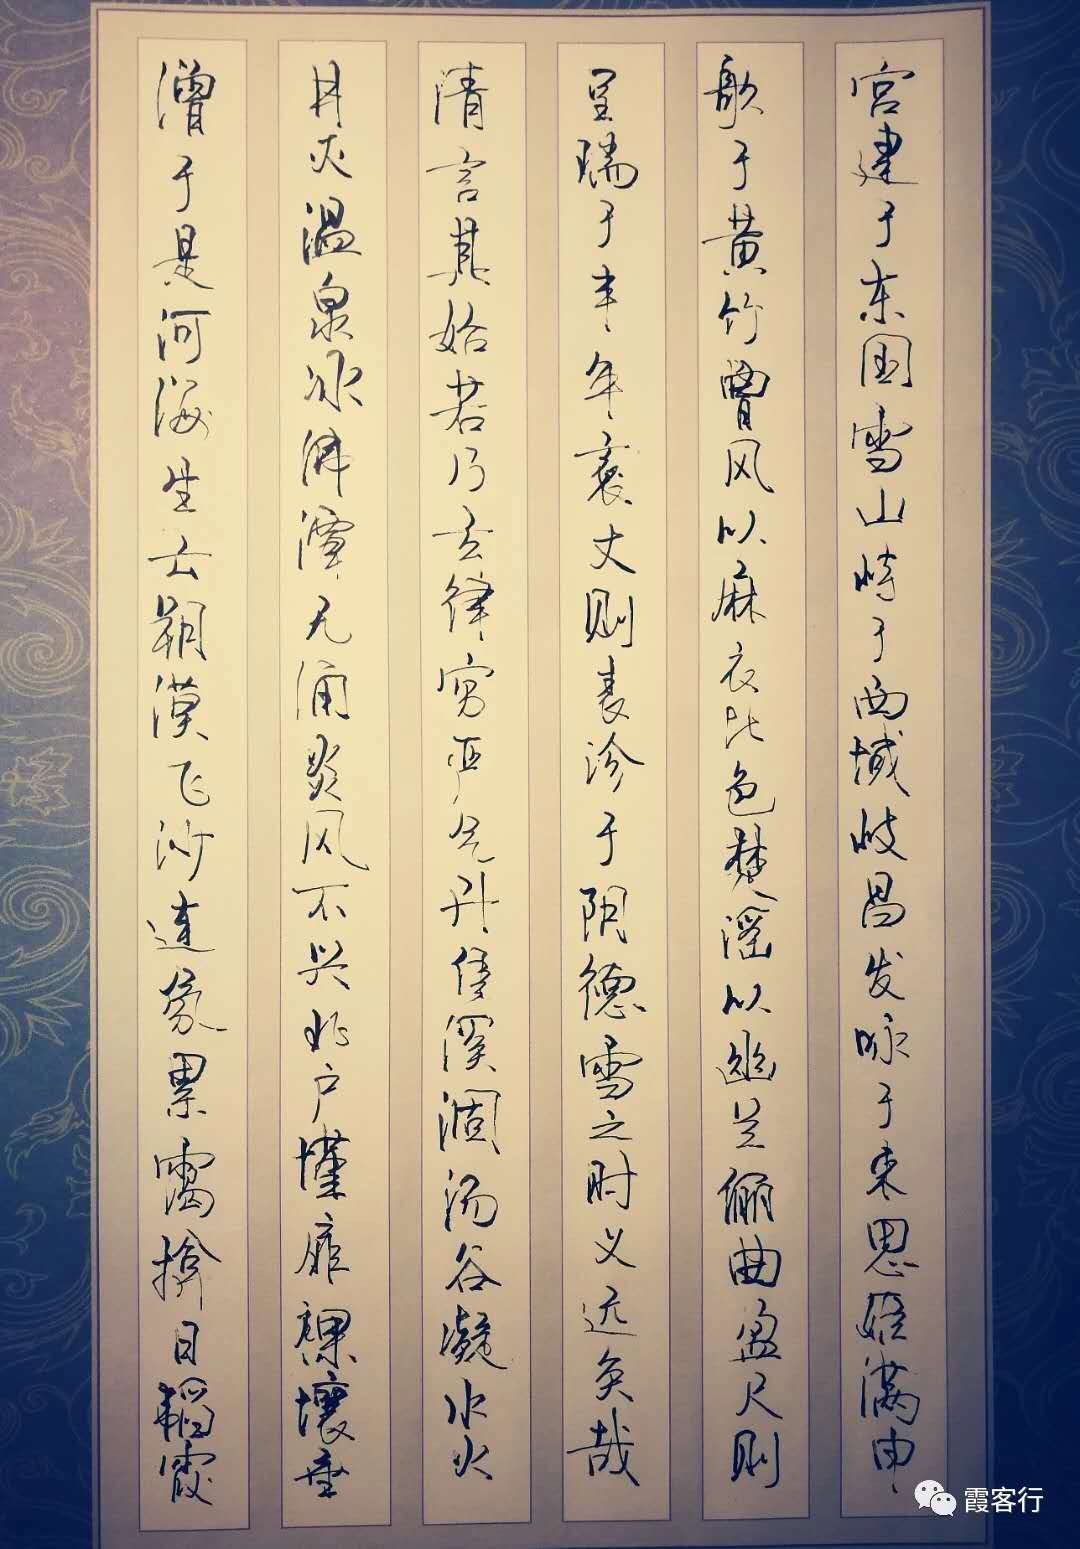 宫建于东国雪山峙于西域岐昌发咏于来思姬满申
歌于黄竹曹风以麻衣比色楚谣以幽兰俪曲盈尺则
呈瑞于丰年袤丈则表沴于阴德雪之时义远矣哉
清言其始若乃玄律穷严气升焦溪涸汤谷凝水火
井灭温泉冰沸潭无涌炎风不兴北户墐扉裸壤垂
缯于是河海生云朔漠飞沙连氛累霭揜日韬霞
霞客行